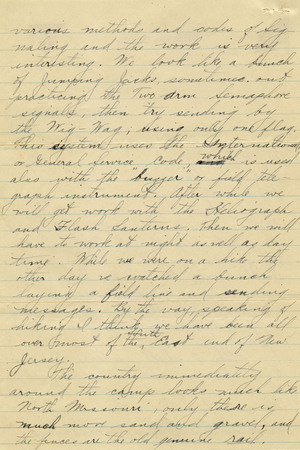 various methods and codes of Sig-
naling and the work is very
interesting. We look like a bunch
of Jumping Jacks, sometimes, out
practicing the Two arm Semaphore
signals, then try sending by
the Wig-Wag, using only one flag.
This system uses the International,
or General Service Code, which is used
also with the "buzzer" or field tele
graph instrument. After while we
will get work with the Heliograph
and Flash Lanterns. Then we will
have to work at night as well as day
time. While we were on a hike the
other day we watched a bunch
laying a field line and sending
messages. By the way, speaking of
hiking I think we have been all
over most of the East end of New
Jersey.
The country immediately
around the camp looks much like
North Missouri, only there is
much more sand and gravel, and
the fences are the old genuine rail,